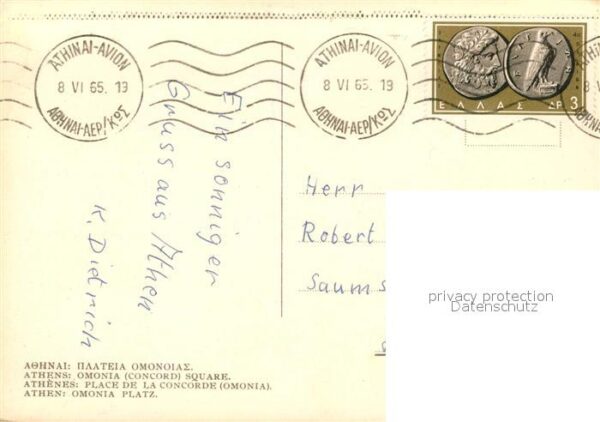 ΑΤΗΙΝΑΙ-AVION
8 VI 65. 19
ΑΘΗΝΑΙ-ΑΕΡ/ΚΩΣ
ATHINAI-AVION
8 VI 65. 19
ΑΘΗΝΑΙ-ΑΕΡ/ΚΩΣ
ΕΛΛΑΣ ΔΡ. 3
Ein sonniger
Gruss aus Athen
K. Dietrich
Herr
Robert
Saums
privacy protection
Datenschutz
ΑΘΗΝΑΙ: ΠΛΑΤΕΙΑ ΟΜΟΝΟΙΑΣ.
ATHENS: OMONIA (CONCORD) SQUARE.
ATHÈNES: PLACE DE LA CONCORDE (OMONIA).
ATHEN: OMONIA PLATZ.